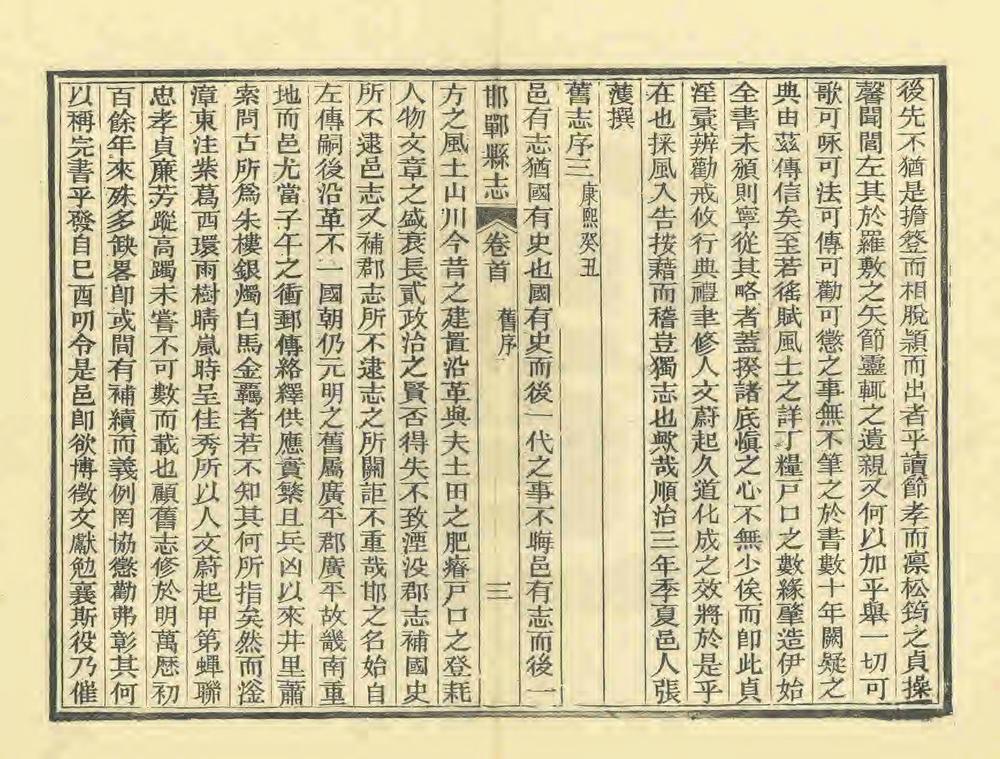 後先不猶是擔簦而相脫穎而出者乎讀節孝而凛松筠之貞操
馨聞閭左其於羅敷之矢節靈輒之遺親又何以加乎舉一切可
歌可咏可法可傳可勸可懲之事無不筆之於書數十年闕疑之
典由茲傳信矣至若徭賦風土之詳丁糧戶口之數緣肇造伊始
全書未頒則寧從其略者蓋揆諸底愼之心不無少俟而卽此貞
淫彚辨勸戒攸行典禮聿修人文蔚起久道化成之效將於是乎
在也採風入告按藉而稽豈獨志也歟哉順治三年季夏邑人張
濩撰
舊志序三康熙癸丑
邑有志猶國有史也國有史而後一代之事不晦邑有志而後一
邯鄲縣志 卷首 舊序 三
方之風土山川今昔之建置沿革與夫土田之肥瘠戶口之登耗
人物文章之盛衰長貳政治之賢否得失不致湮没郡志補國史
所不逮邑志又補郡志所不逮志之所關詎不重哉邯之名始自
左傳嗣後沿革不一國朝仍元明之舊屬廣平郡廣平故畿南重
地而邑尤當子午之衝郵傳絡繹供應賁繁且兵凶以來井里蕭
索問古所爲朱樓銀燭白馬金羈者若不知其何所指矣然而滏
漳東注紫葛西環雨樹晴嵐時呈佳秀所以人文蔚起甲第蟬聯
忠孝貞廉芳蹤高躅未嘗不可數而載也顧舊志修於明萬歷初
百餘年來殊多缺畧卽或間有補續而義例罔協懲勸弗彰其何
以稱完書乎發自己酉叨令是邑卽欲博徵文獻勉襄斯役乃催